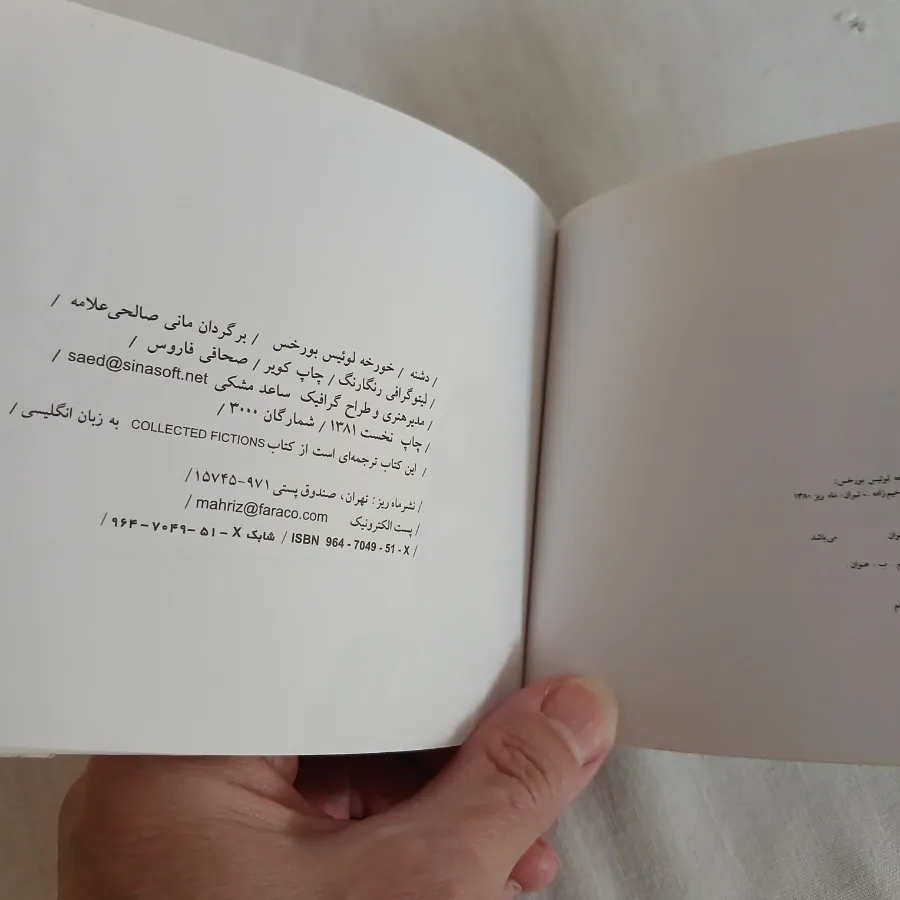 / دشنه / خورخه لوئیس بورخس / برگردان مانی صالحی‌علامه /
/ لیتوگرافی رنگارنگ / چاپ کویر / صحافی فاروس /
/ مدیرهنری و طراح گرافیک ساعد مشکی saed@sinasoft.net /
/ چاپ نخست ۱۳۸۱ / شمارگان ۳۰۰۰ /
/ این کتاب ترجمه‌ای است از کتاب COLLECTED FICTIONS به زبان انگلیسی /
/ نشرماه‌ریز : تهران، صندوق پستی ۹۷۱-۱۵۷۴۵ /
/ پست الکترونیک mahriz@faraco.com
/ ISBN 964 - 7049 - 51 - X / شابک X – ۵۱ – ۷۰۴۹ – ۹۶۴ /
لوئیس بورخس:
تهران: ماه ریز ۱۳۸۰
می‌باشد
ب. عنوان.